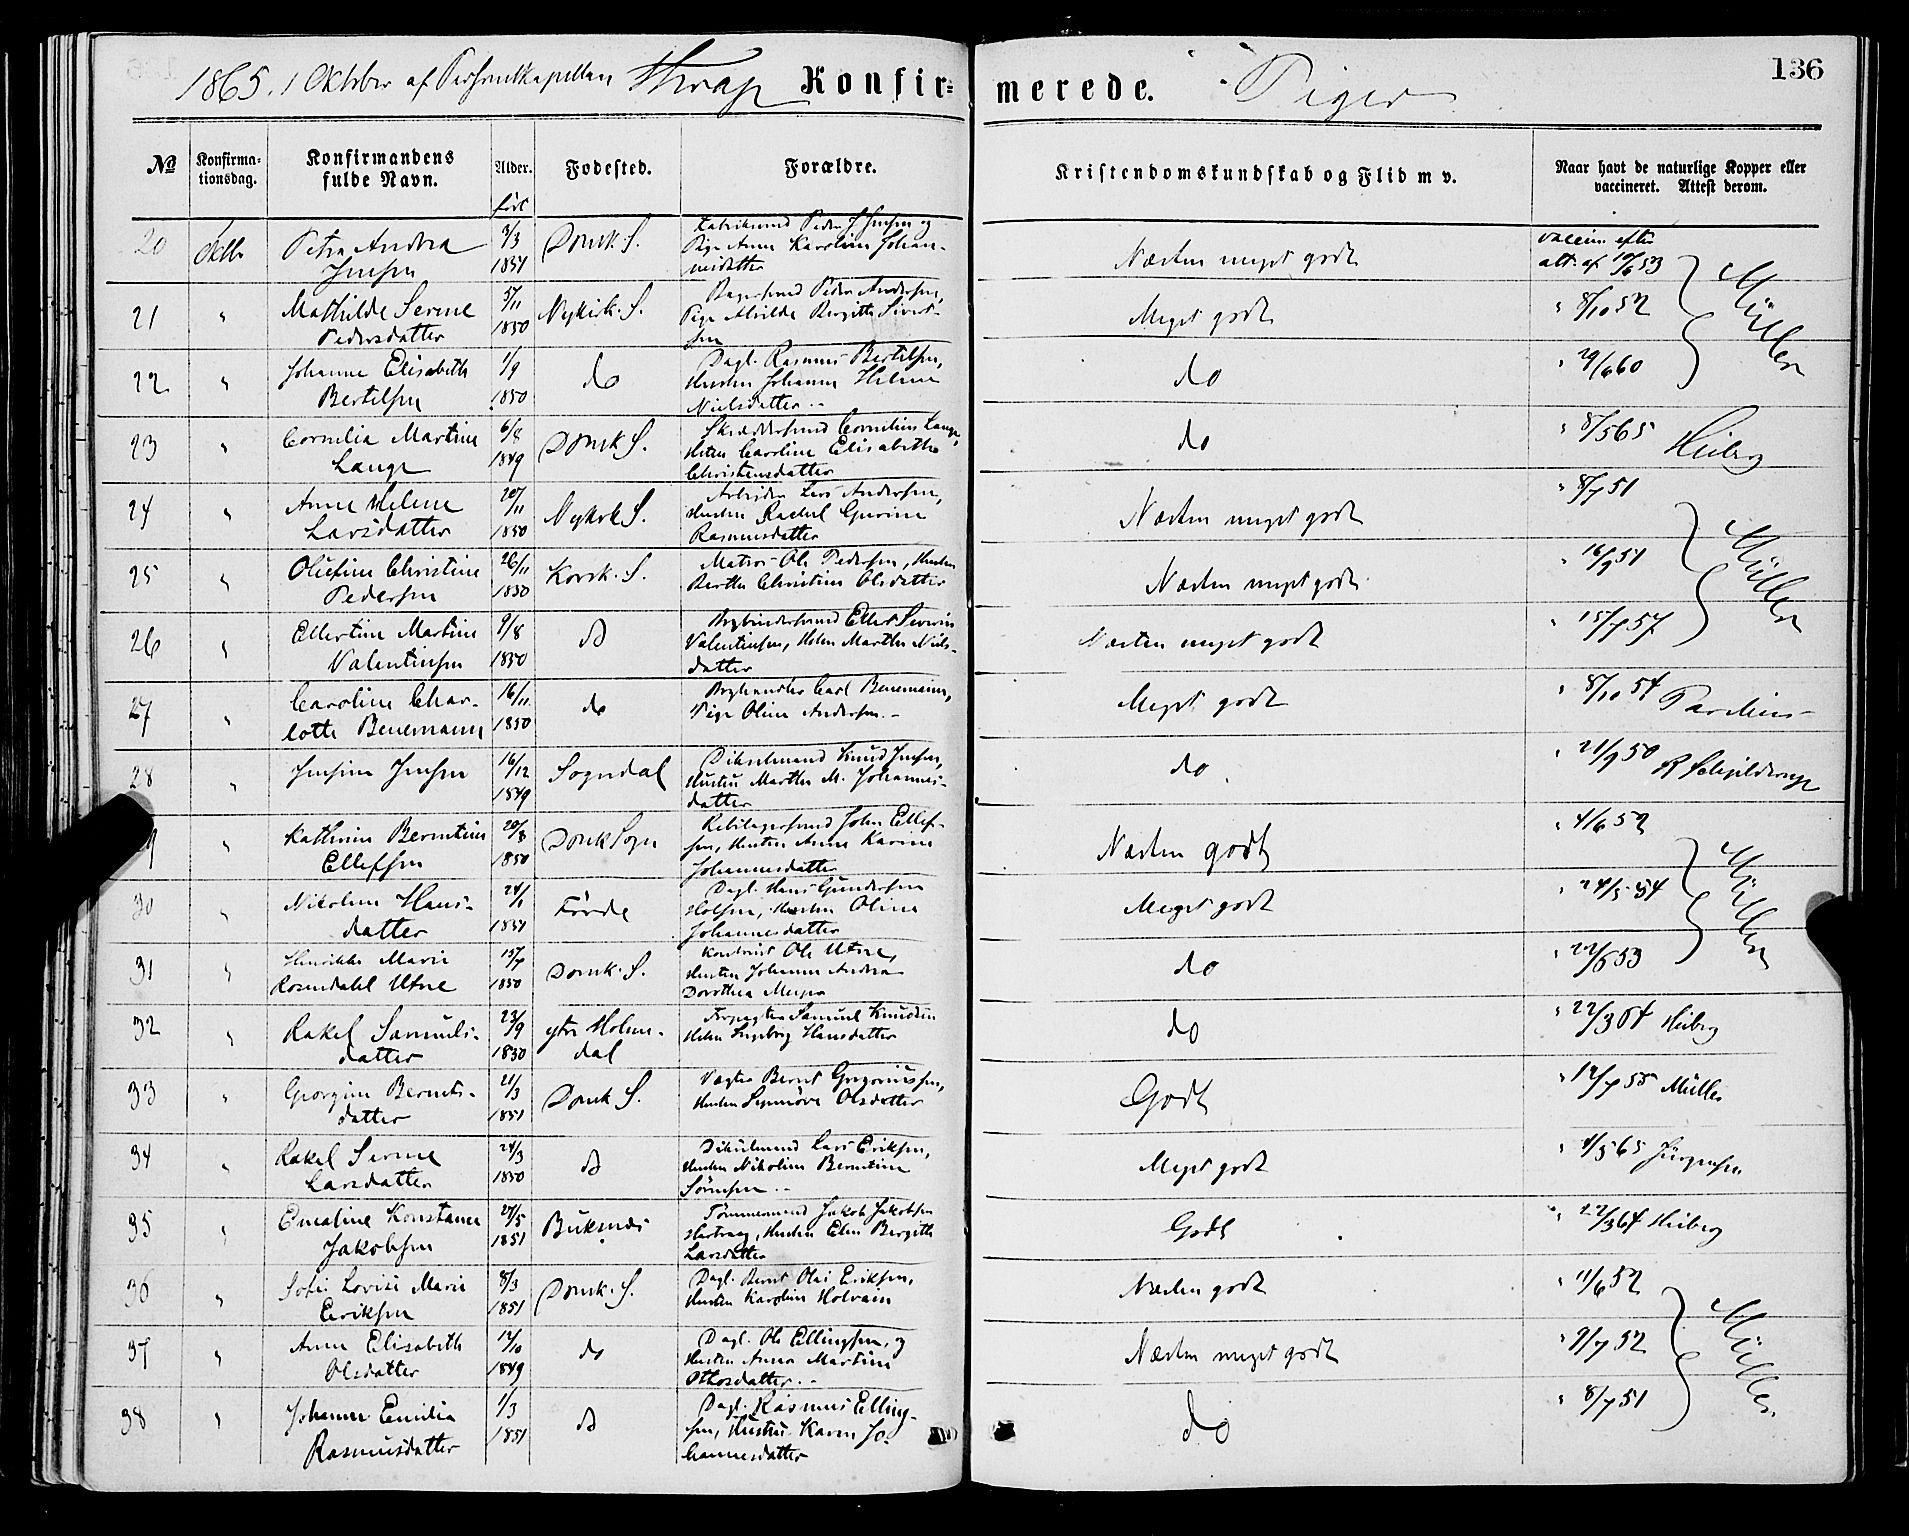 1865. 1 Oktober af Personelkapellan Konfir-
merede. Piger
136
No
Konfirma-
tionsdag.
Konfirmandens
fulde Navn.
Alder.
født
Fødested.
Forældre.
Kristendomskundskab og Flid m v.
Naar havt de naturlige Kopper eller
vaccineret. Attest derom.
20 Oktbr Petra Andrea
Jensen
3/3
1851
Domk. S.
Peder J. Jensen og
Pige Anne Karoline Johan-
nesdatter
Næsten meget godt
vaccin. efter
att. af 12/6 53
21 " Mathilde Serine
Pedersdatter
5/11
1850
Nykirk. S.
Peder Andersen,
Pige Alvilde Bergitte Sivert-
sen
Meget godt
" 8/10 52
22 " Johanne Elisabeth
Bertelsen
1/9
1850
do
Dagl. Rasmus Bertelsen,
Hustru Johanne Helene
Nielsdatter
do
" 29/6 60
Müller
23 " Cornelia Martine
Lange
6/8
1849
Domk S.
Skræddersvend Cornelius Lange,
Hustru Caroline Elisabeth
Christensdatter
do
" 8/5 65 Heiberg
24 " Anne Helene
Larsdatter
20/11
1850
Nykirk S.
Arbeider Lars Andersen,
Hustru Rachel Gurine
Rasmusdatter
Næsten meget godt
" 8/7 51
25 " Olufine Christine
Pedersen
26/11
1850
Korsk. S.
Matros Ole Pedersen, Hustru
Berthe Christine Olsdatter
Næsten meget godt
" 16/9 51
26 " Ellertine Martine
Valentinsen
9/8
1850
do
Ellert Severin
Valentinsen, Hustru Marthe Niels-
datter
Næsten meget godt
" 15/7 57
Müller
27 " Caroline Char-
lotte Benemann
16/11
1850
do
Carl Benemann,
Pige Oline Andersen
Meget godt
" 8/10 54
28 " Jensine Jensen
16/12
1849
Sogndal
Knud Jensen,
Hustru Marthe M. Johannes-
datter
do
" 21/9 50
9 " Kathrine Berntine
Ellefsen
20/8
1850
Domk Sogn
John Ellef-
sen, Hustru Anne Karine
Johannesdatter
Næsten godt
" 4/6 52
30 " Nikoline Hans-
datter
24/1
1851
Førde
Dagl. Hans Gundersen
Hustru Oline
Johannesdatter
Meget godt
" 24/5 54
31 " Henrikke Marie
Rosendahl Utne
15/7
1850
Domk. S.
Ole Utne,
Hustru Johanne Andrea
Dorothea Meyer
do
" 22/6 53
Müller
32 " Rakel Samuels-
datter
23/9
1850
ytre Holme-
dal
Samuel Knudsen
Hustru Ingeborg Hansdatter
do
" 22/3 64 Heiberg
33 " Georgine Bernts-
datter
21/3
1851
Domk S.
Vægter Bernt Gregoriussen,
Hustru Synnøve Olsdatter
Godt
" 12/7 55 Müller
34 " Rakel Serine
Larsdatter
24/3
1850
do
Lars Eriksen,
Hustru Nikoline Berntine
Sørensen
Meget godt
" 4/5 65 Jürgensen
35 " Emeline Konstance
Jakobsen
27/5
1851
Buksnæs
Tømmermand Jakob Jakobsen
Hustru Elen Bergitte
Larsdatter
Godt
" 22/3 64 Heiberg
36 " Sofie Lovise Marie
Eriksen
8/3
1851
Domk. S.
Dagl. Bernt Olai Eriksen,
Hustru Karoline Holvain
Næsten godt
" 11/6 52
37 " Anne Elisabeth
Olsdatter
12/10
1849
do
Dagl. Ole Ellingsen, og
Hustru Anna Martine
Othosdatter
Næsten meget godt
" 9/7 52
38 " Johanne Emilie
Rasmusdatter
1/3
1851
do
Dagl. Rasmus Elling-
sen, Hustru Karen Jo-
hannesdatter
do
" 8/7 51
Müller